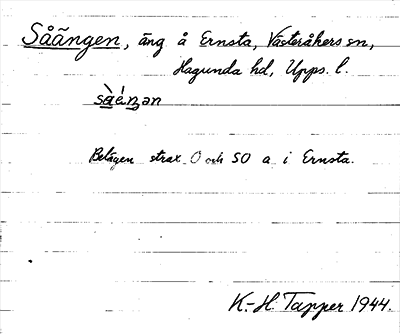 Såängen, äng å Ernsta, Västeråkers sn,
Hagunda hd, Upps. l.
Belägen strax O och SO a i Ernsta.
K.-H. Tapper 1944.